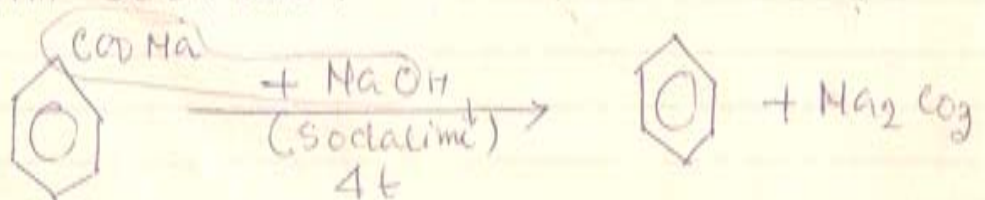 COO Na
+ NaOH
(Sodalime)
+ Na2 CO3